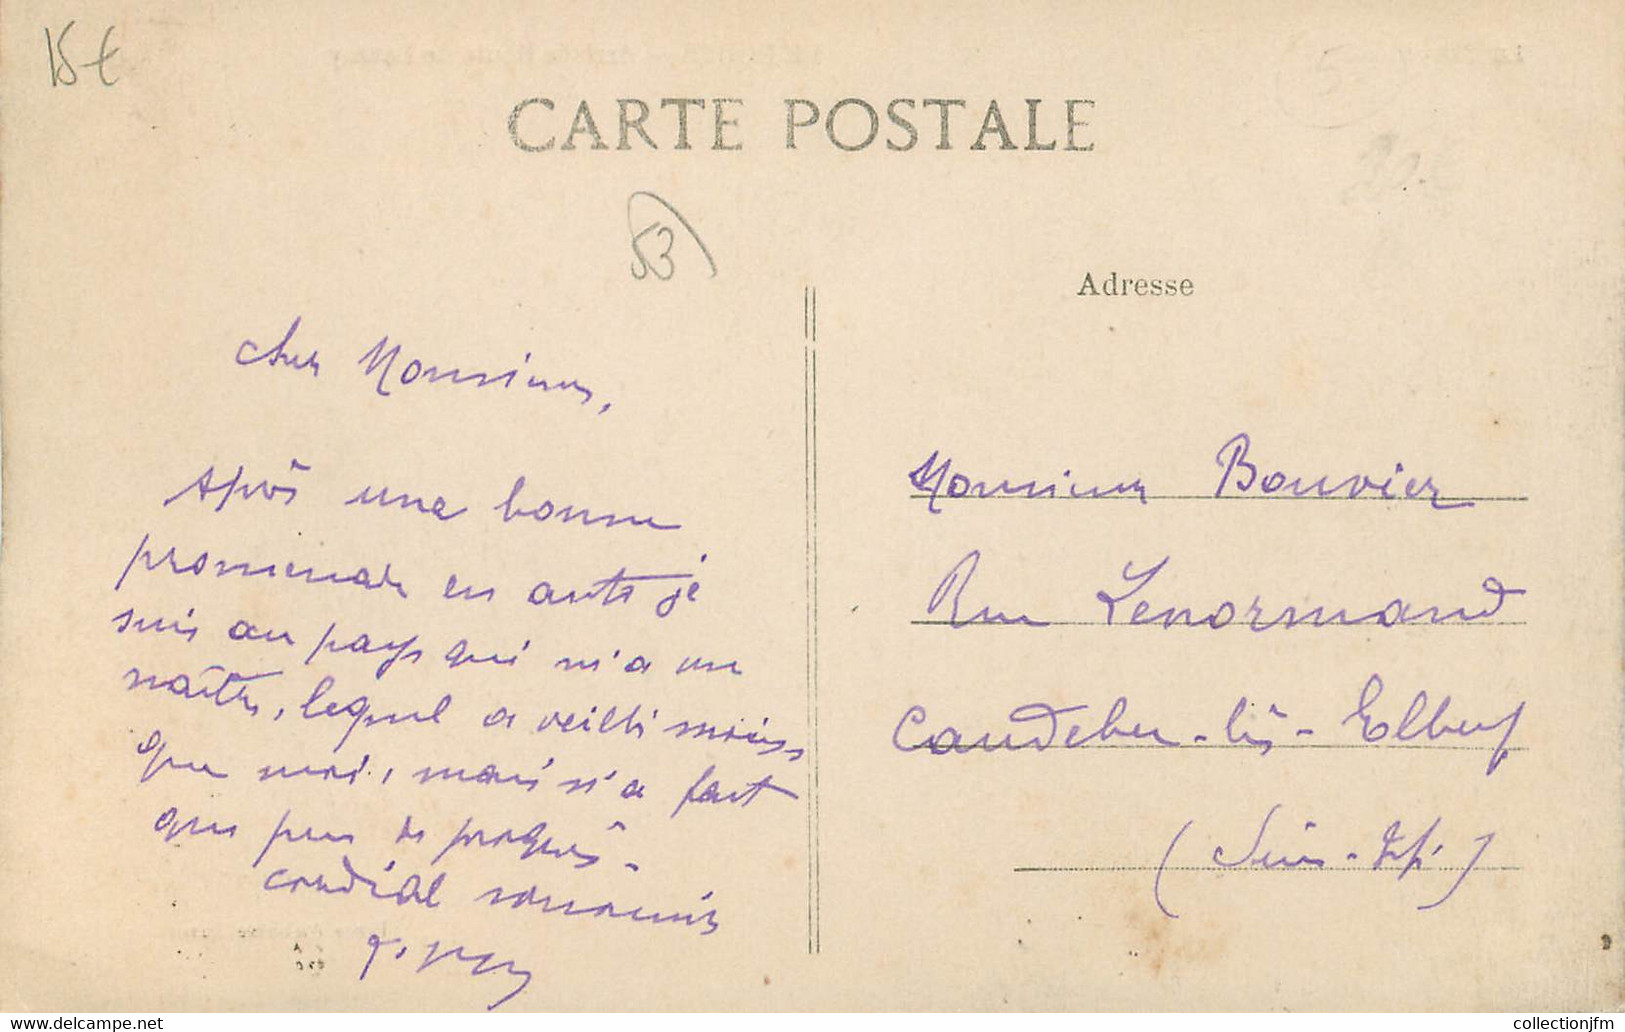 15 €
CARTE POSTALE
53
Adresse
Cher Monsieur,
Après une bonne
promenade en auto je
suis au pays qui m'a vu
naître, lequel a vieilli moins
que moi, mais n'a fait
que peu de progrès.
Cordial souvenir
Monsieur Bouvier
Rue Lenormand
Caudebec-lès-Elbeuf
(Seine-Infre)
collectionjfm